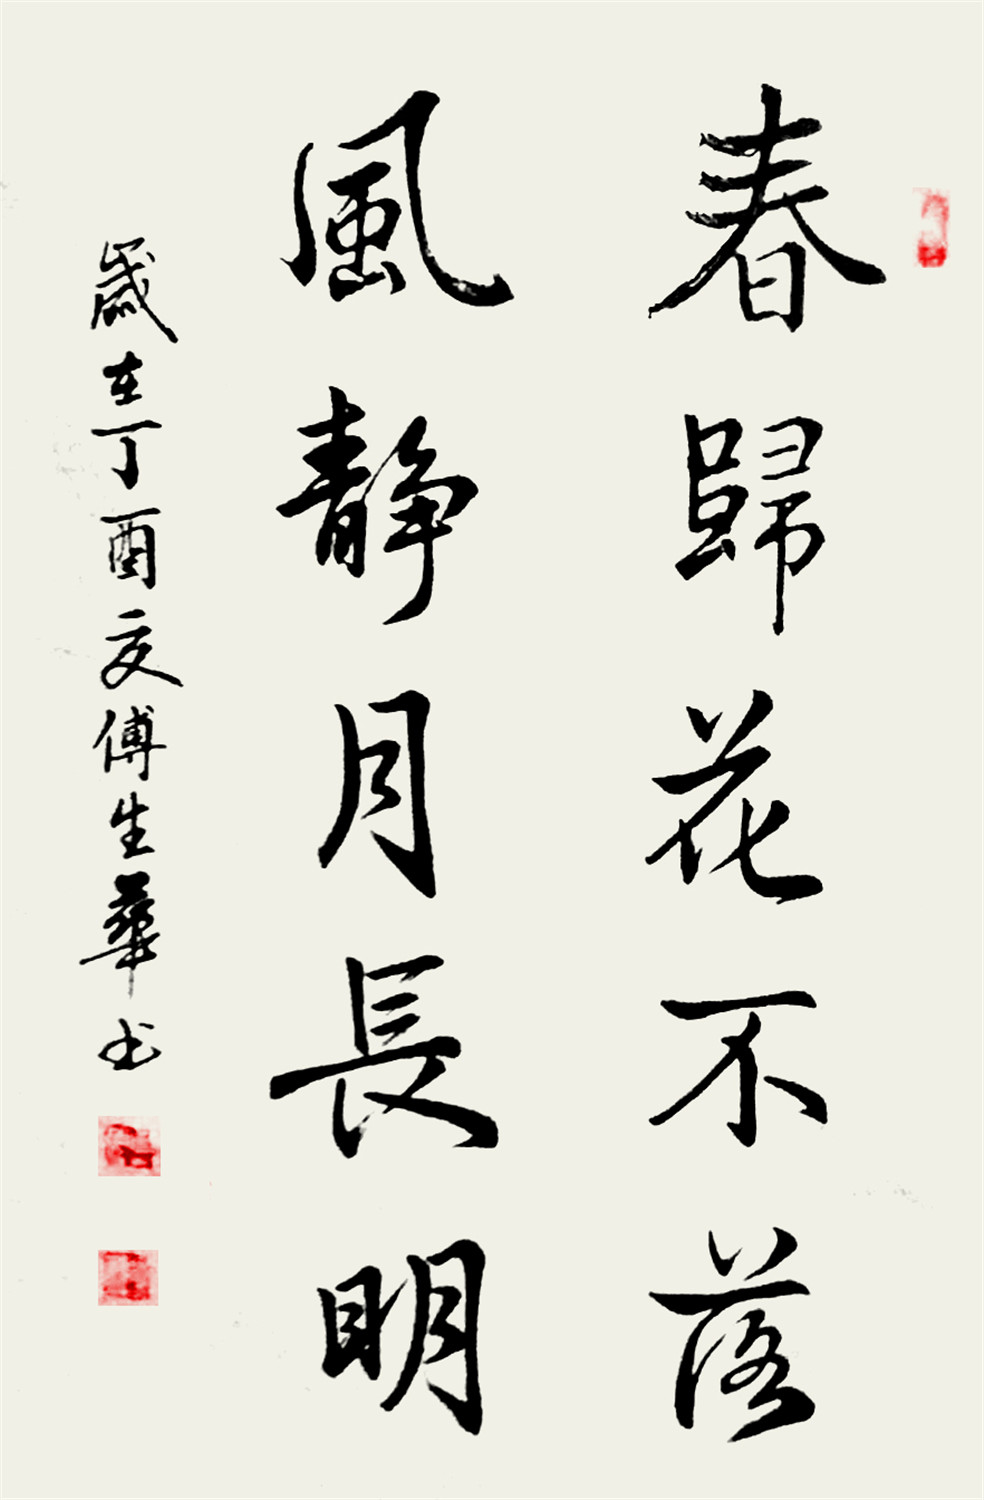 春歸花不落
風静月長明
歲在丁酉夏傅生華书